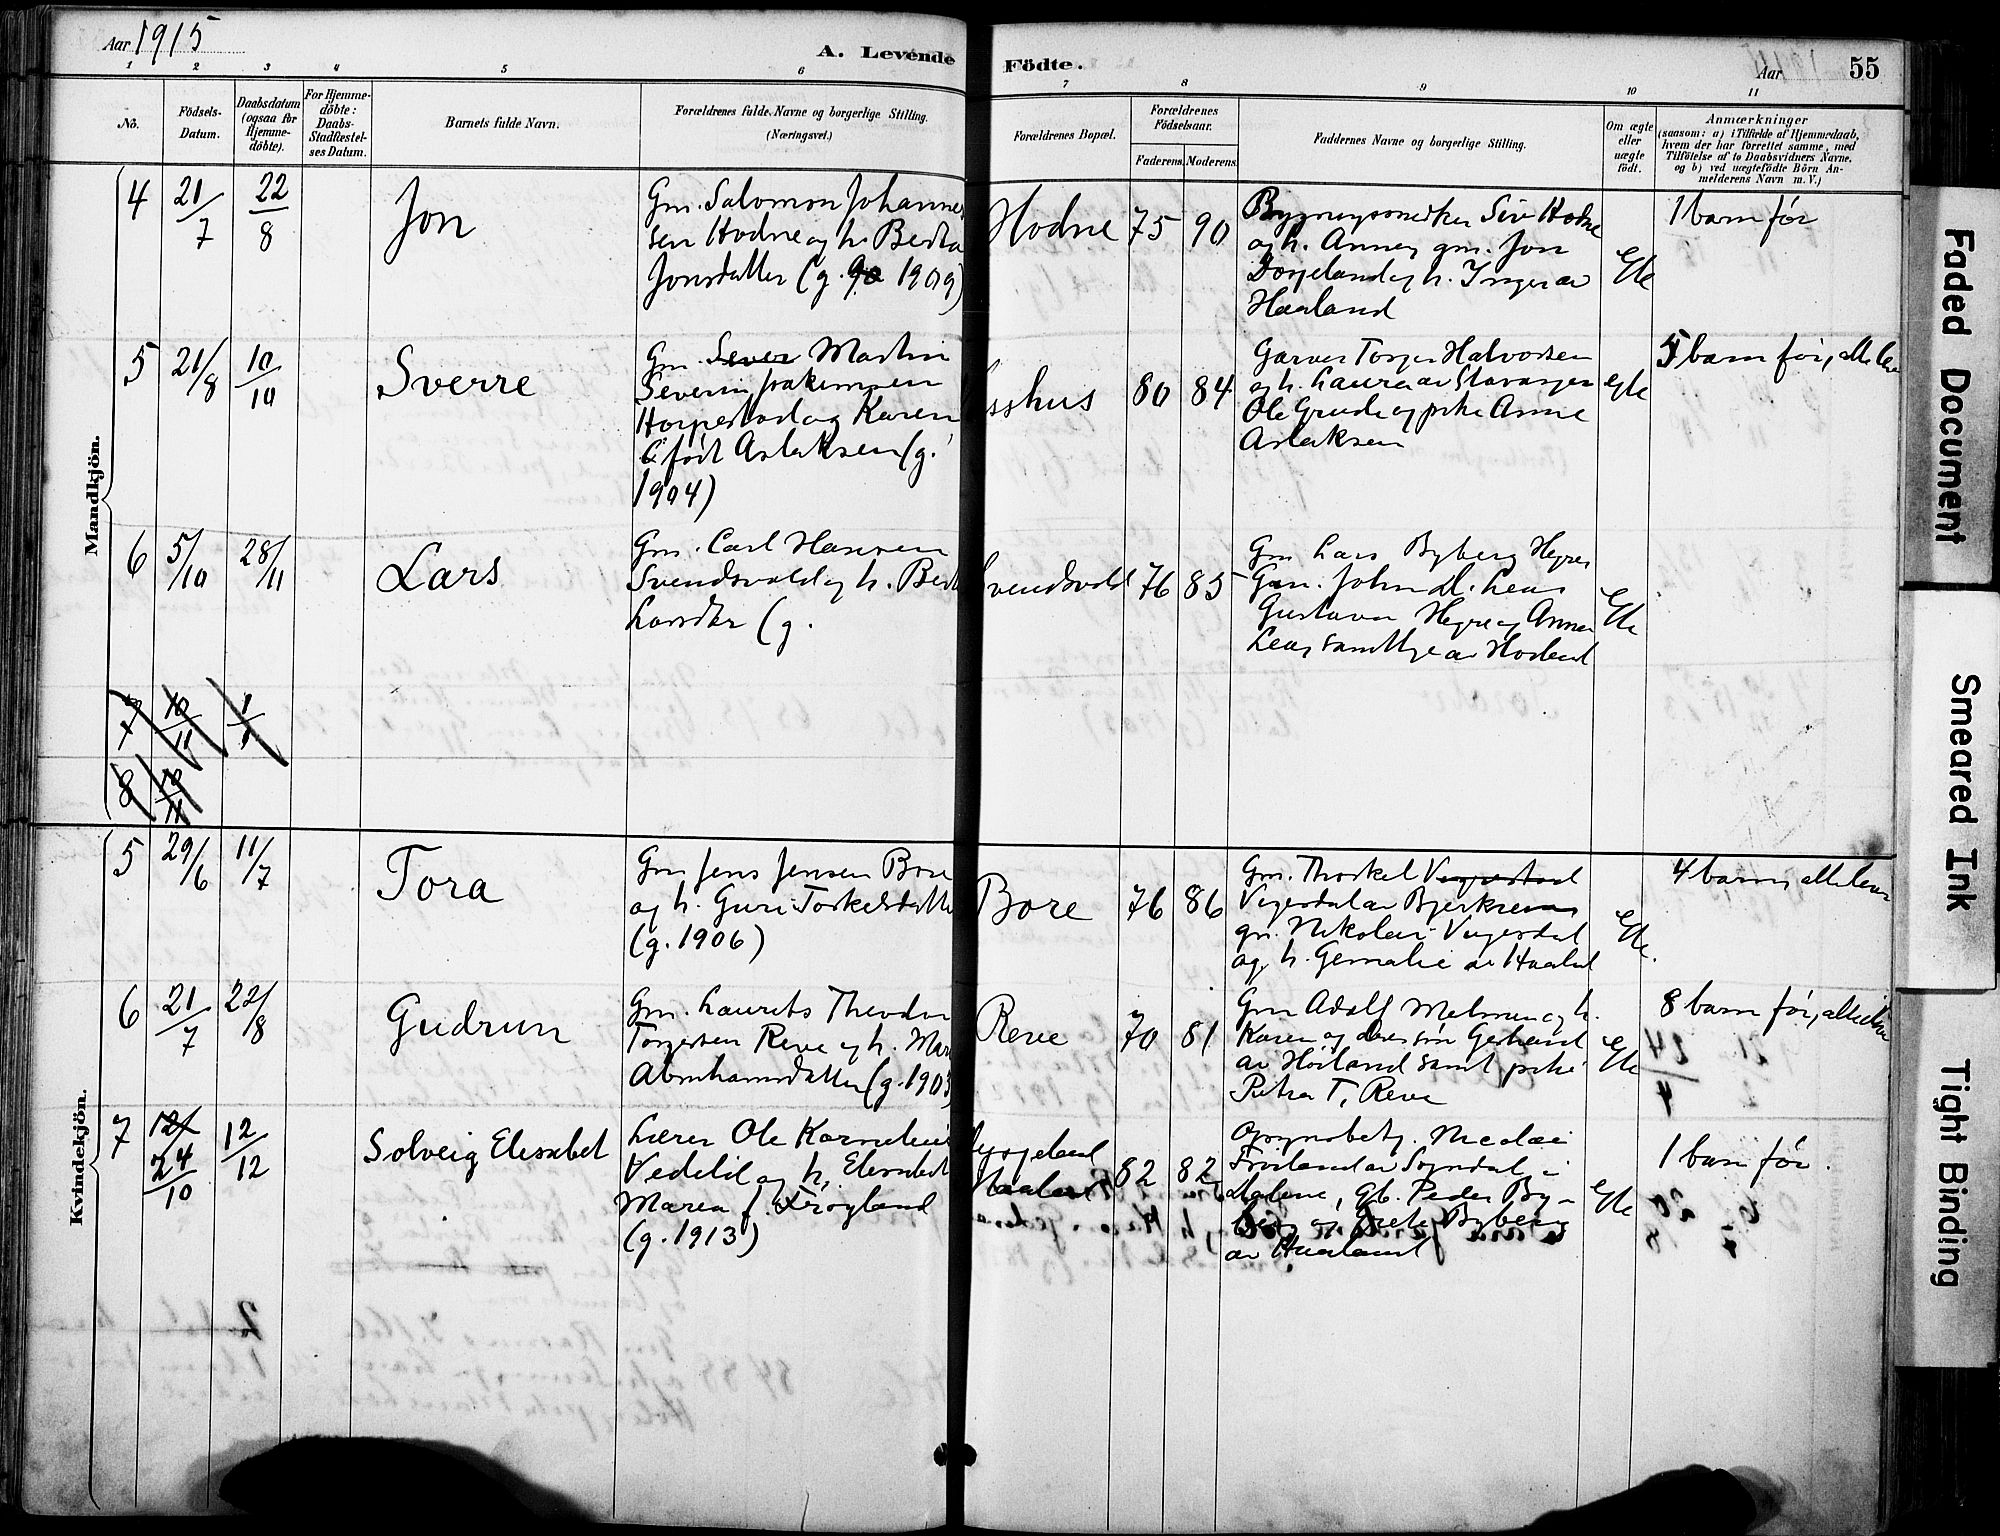 Aar 1915
A. Levende
Födte.
Aar
55
1
2
3
4
5
6
7
8
9
10
11
No.
Födsels-
Datum.
Daabsdatum
(ogsaa for
Hjemme-
döbte).
For Hjemme-
döbte:
Daabs-
Stadfæstel-
ses Datum.
Barnets fulde Navn.
Forældrenes fulde Navne og borgerlige Stilling.
(Næringsvei.)
Forældrenes Bopæl.
Forældrenes
Födselsaar.
Faderens.
Moderens.
Faddernes Navne og borgerlige Stilling.
Om ægte
eller
uægte
födt.
Anmærkninger
(saasom: a) i Tilfælde af Hjemmedaab,
hvem der har forrettet samme, med
Tilföielse af to Daabsvidners Navne,
og b) ved uægtefödte Börn An-
melderens Navn m. V.)
Mandkjön.
4
21/7
22/8
Jon
Gm. Salomon Johannes
sen Hodne og h. Berta
Jonsdatter (g. 1909)
Hodne
75
90
og h. Anne, gm. Jon
og h. Inger av
Haaland
Egte
1 barn før
5
21/8
10/10
Sverre
Gm. Sever Martin
Severin Joakimsen
Horpestad og Karen
født Aslaksen (g.
1904)
80
84
Garver Torger Halvorsen
og h. Laura av Stavanger
Ole Grude og pike Anne
Aslaksen
Egte
5 barn før, alle lever
6
5/10
28/11
Lars
Gm. Carl Hansen
Svendsvold og h. Berta
Larsdtr (g.
Svendsvold
76
85
Gm Lars Byberg Hegre
Gm. John L. Lea
Gustava Hegre og Anna
Lea, samtlige av Haaland
Egte
7
10/11
8
10/11
Kvindekjön.
5
29/6
11/7
Tora
Gm Jens Jensen Bore
og h. Guri Torkelsdatter
(g. 1906)
Bore
76
86
Gm. Thorkel
av Bjerkreim
gm. Nikolai
og h. av Haaland
Egte.
4 barn, alle lever
6
21/7
22/8
Gudrun
Gm. Laurits Theodor
Torgersen Reve og h. Mar
Abrahamsdatter (g. 1903
Reve
70
81
Gm Adolf og h.
Karen og deres søn Gerhard
av Høiland samt pike
Petra T. Reve
Egte
8 barn før,
7
24/10
12/12
Solveig Elisabet
Lærer Ole Kornelius
Vedelid og h. Elisabet
Maren f. Frøyland
(g. 1913)
Haaland
82
82
Opsynsbetj. Nicolai
Frøiland av Sogndal i
Dalene, Gb. Peder By-
berg og Grete Byberg
av Haaland
Egte
1 barn før.
Faded Document
Smeared Ink
Tight Binding